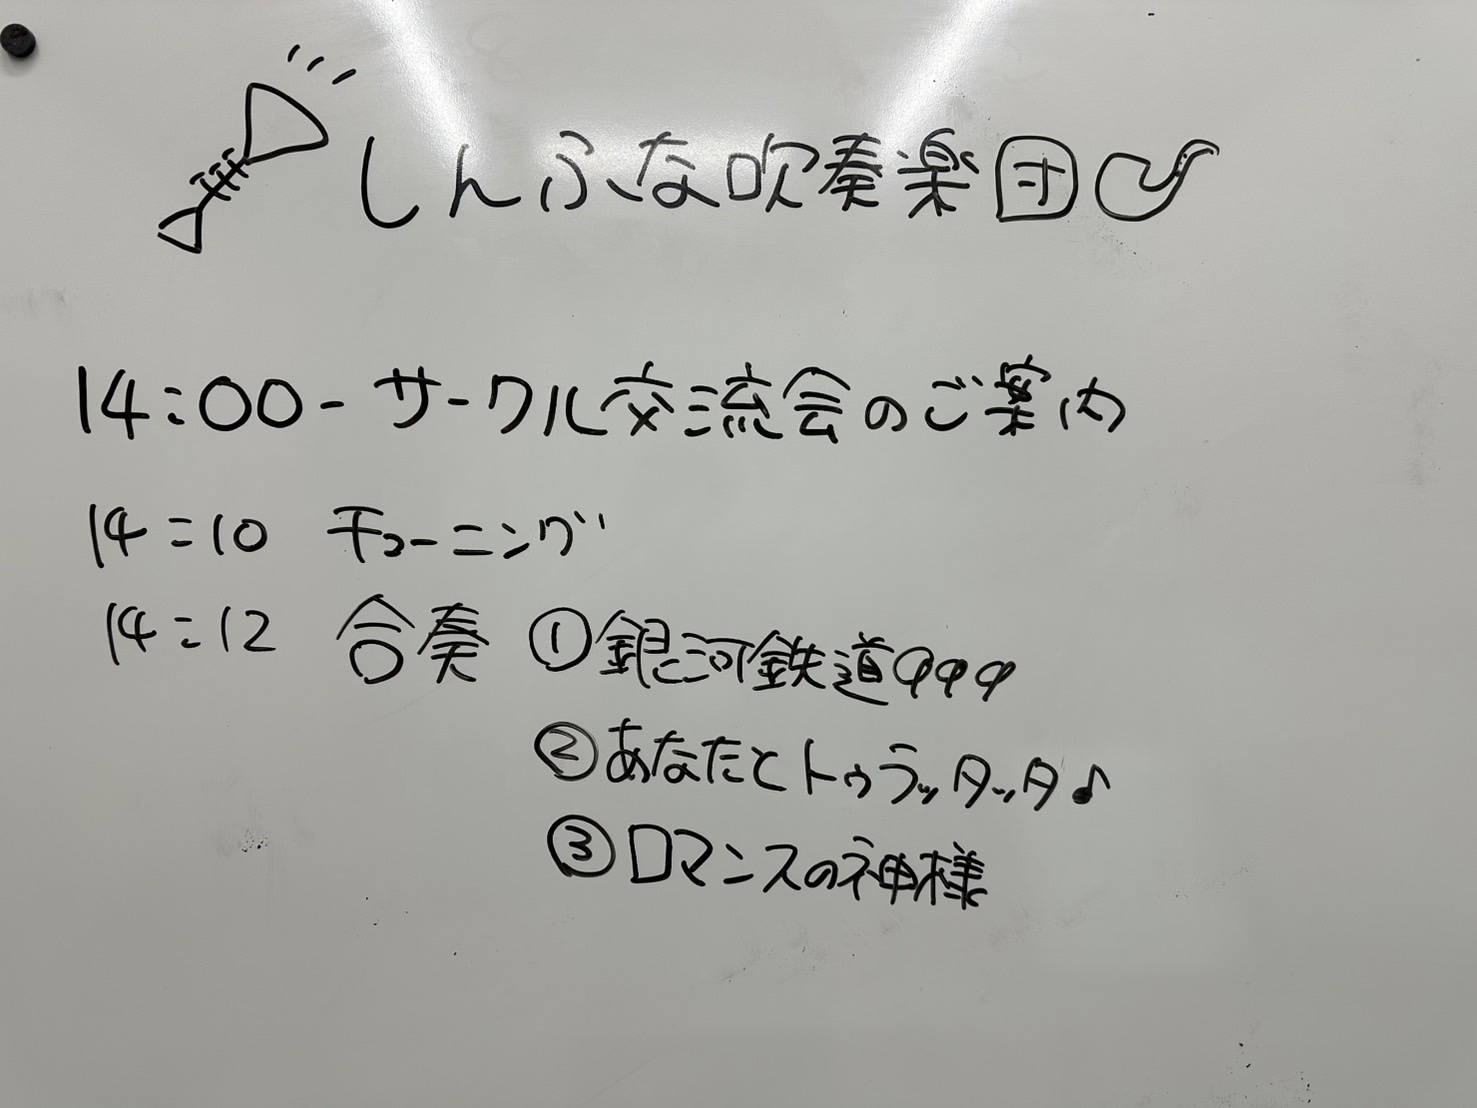 しんふな吹奏楽団
14:00- サークル交流会のご案内
14:10 チューニング
14:12 合奏 ①銀河鉄道999
②あなたとトゥラッタッタ♪
③ロマンスの神様